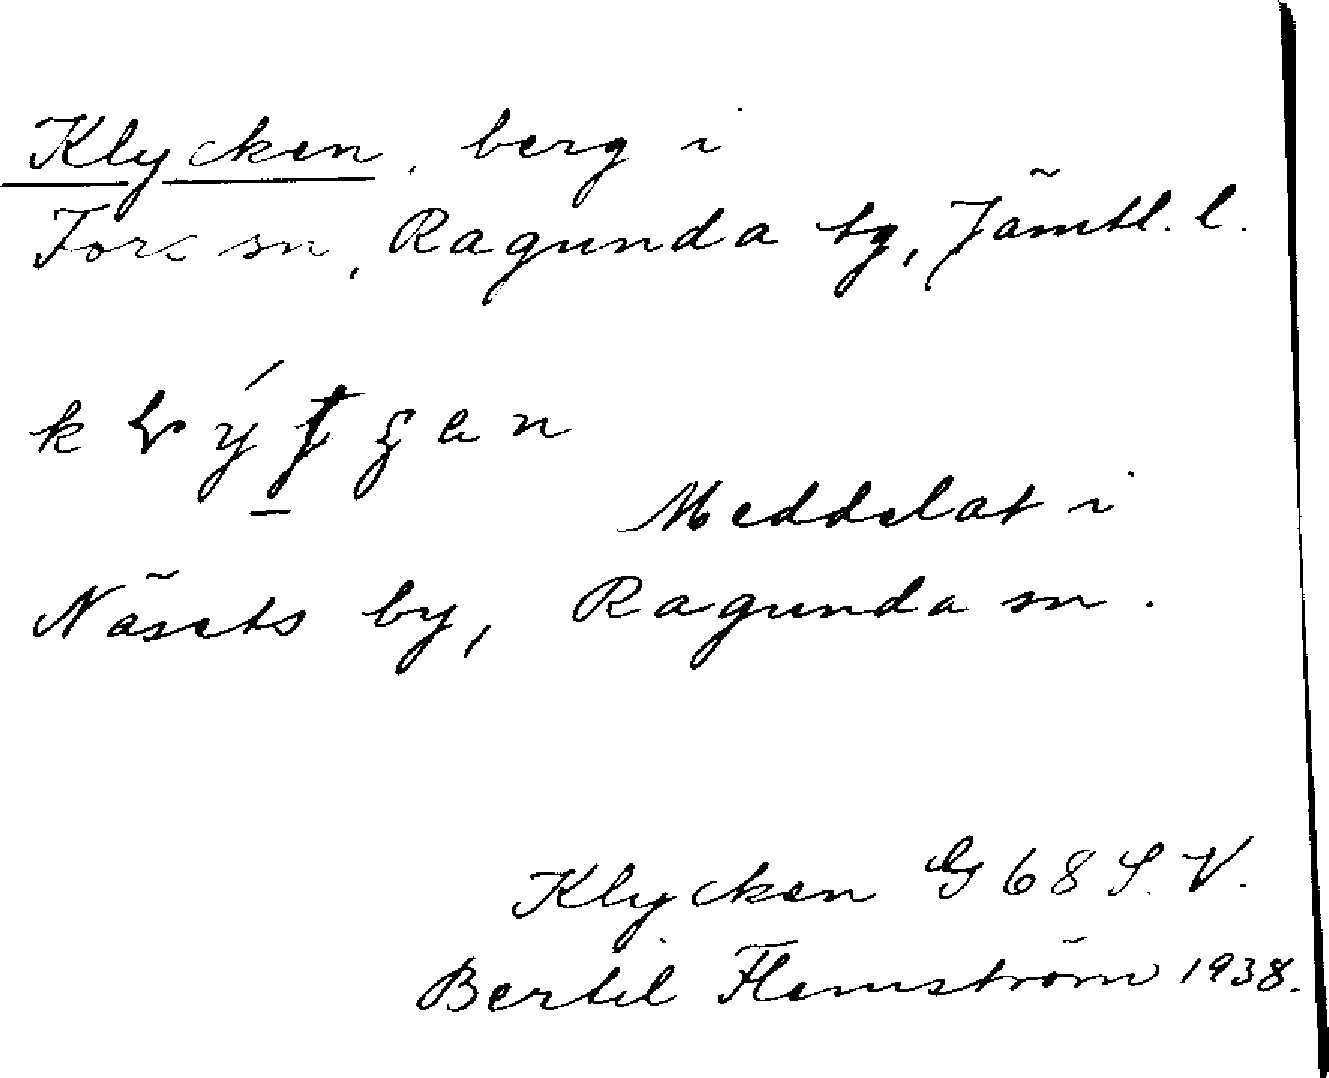 Klycken, berg i
Fors sn, Ragunda tg, Jämtl. l.
Meddelat i
Näsets by, Ragunda sn.
Klycken G 68 S. V.
Bertil Flemström 1938.